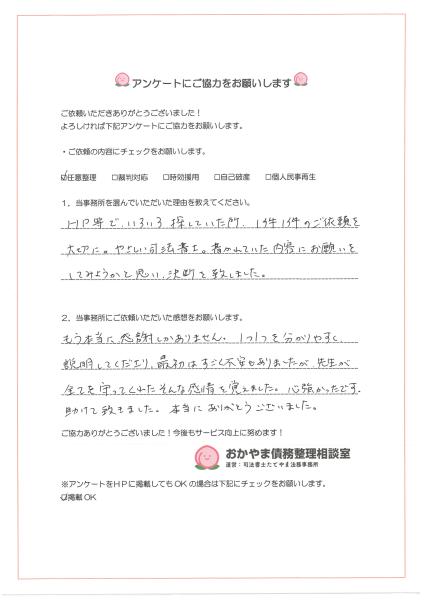 アンケートにご協力をお願いします
ご依頼いただきありがとうございました！
よろしければ下記アンケートにご協力をお願いします。
・ご依頼の内容にチェックをお願いします。
☑任意整理 □裁判対応 □時効援用 □自己破産 □個人民事再生
１．当事務所を選んでいただいた理由を教えてください。
HP等で、いろいろ探していた所、1件1件のご依頼を
大切に。やさしい司法書士。書かれていた内容にお願いを
してみようかと思い、決断を致しました。
２．当事務所にご依頼いただいた感想をお願いします。
もう本当に感謝しかありません。1つ1つを分かりやすく
説明してくださり、最初はすごく不安もありましたが、先生が
全てを守ってくれたそんな感情を覚えました。心強かったです。
助けて頂きました。本当にありがとうございました。
ご協力ありがとうございました！今後もサービス向上に努めます！
おかやま債務整理相談室
運営：司法書士たてやま法務事務所
※アンケートをＨＰに掲載してもＯＫの場合は下記にチェックをお願いします。
☑掲載ＯＫ